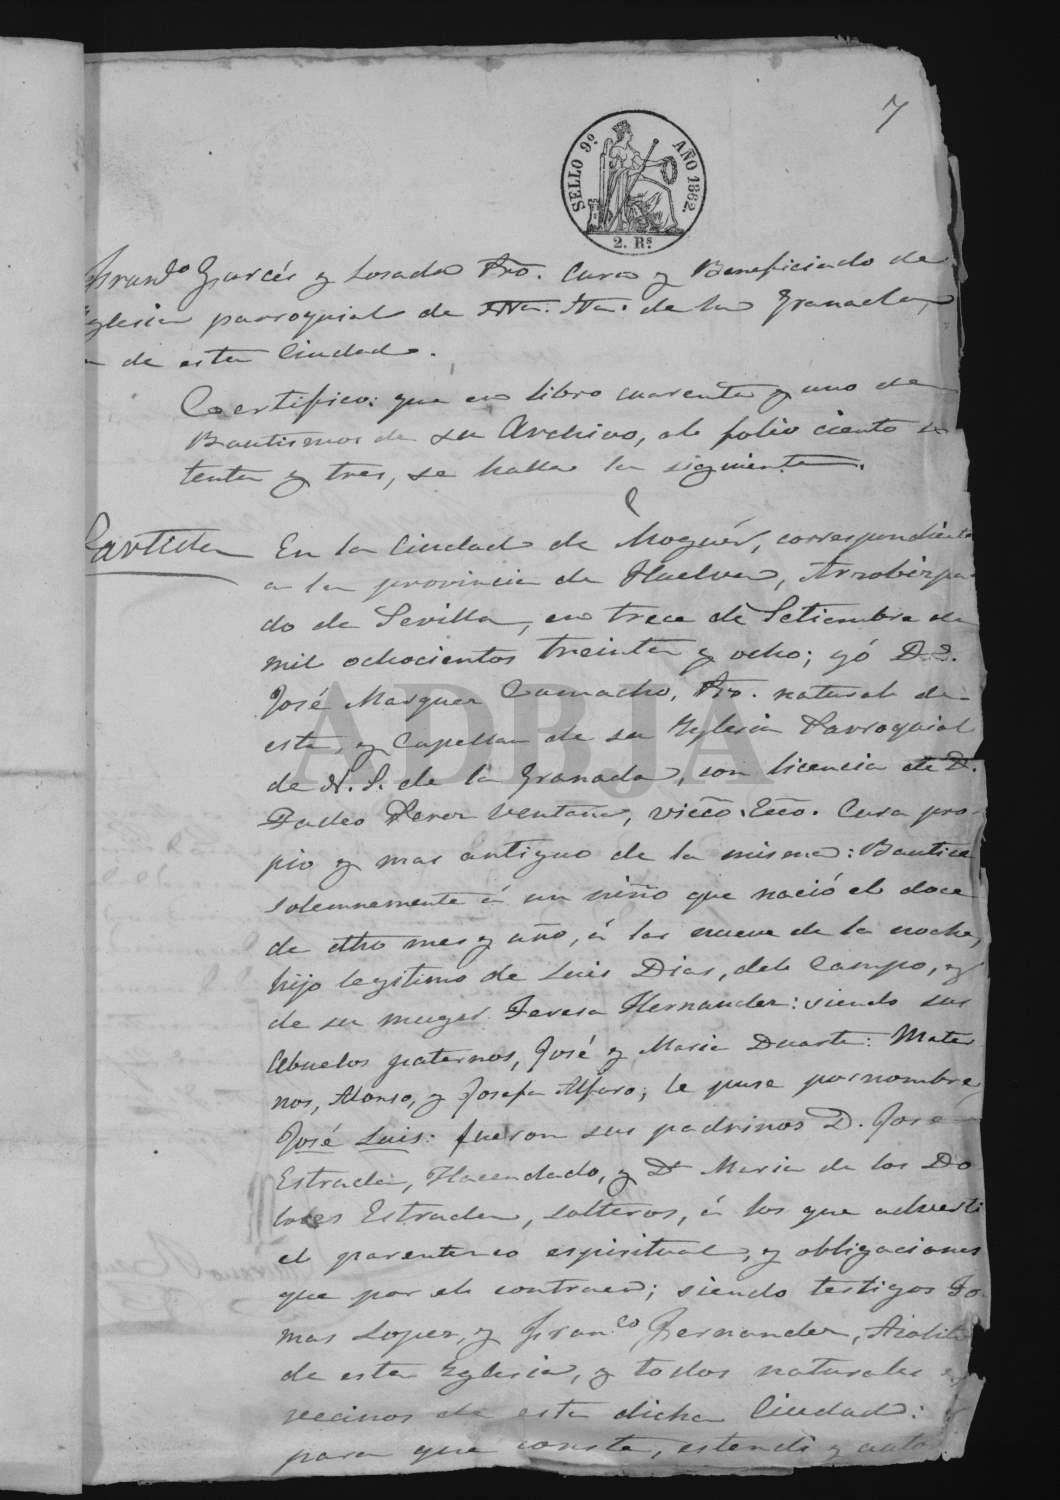 7
SELLO 9º AÑO 1862.
2. Rs
Franco Garcés y Losada Pro. Cura y Beneficiado de
Yglesia parroquial de Ntra. Sra. de la Granada,
de esta Ciudad.
Certifico: que en libro cuarenta y uno de
Bautismos de su Archivo, al folio ciento se
tenta y tres, se halla la siguiente.
Partida En la Ciudad de Moguér, correspondiente
a la provincia de Huelva, Arzobispa
do de Sevilla, en trece de Setiembre de
mil ochocientos treinta y ocho; yó Dn.
José Marquez Camacho, Pro. natural de
esta, y Capellan de su Yglesia Parroquial
de N. S. de la Granada, con licencia de D.
Tadeo Perez Ventana, Vicco. Ecco. Cura pro-
pio y mas antiguo de la misma: Bautice
solemnemente á un niño que nació el doce
de dho mes y año, á las nueve de la noche,
hijo legitimo de Luis Dias, del Campo, y
de su muger Teresa Hernandez: siendo sus
Abuelos paternos, José y Maria Duarte: Mater
nos, Alonso, y Josefa Alfaro; le puse por nombre
José Luis: fueron sus padrinos D. José
Estrada, Hacendado, y Da Maria de los Do
lores Estrada, solteros, á los que adverti
el parentesco espiritual, y obligaciones
que por el contraen; siendo testigos To
mas Lopez, y Franco Fernandez, Acolitos
de esta Yglesia, y todos naturales y
vecinos de esta dicha Ciudad: y
para que conste, estendi y auto
ADBJA